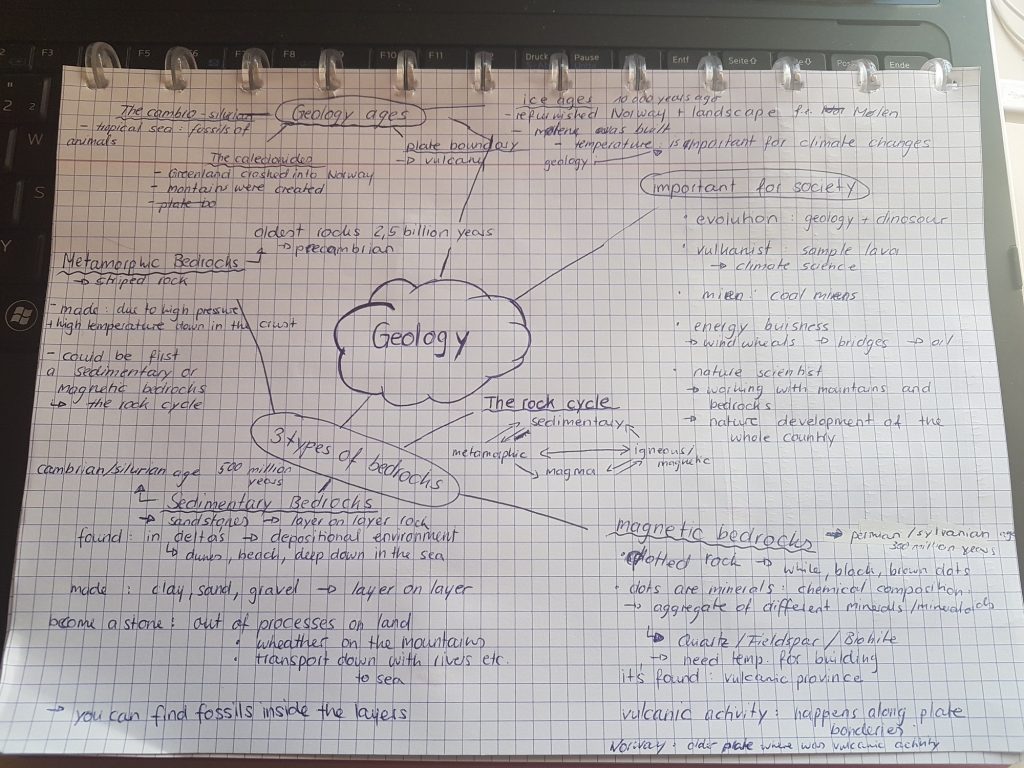 F3
F5
F6
F7
F8
F10
F11
Druck
Pause
Entf
Seite
Ende
2
W
S
Y
The cambro-silurian
- tropical sea: fossils of
animals
Geology ages
The caleclonideo
- Greenland crashed into Norway
- montains were created
- plate bo
plate boundary
→ vulcany
ice ages 10 000 years ago
- refurnished Norway + landscape f.e. Mølen
- molene was built
- temperature is important for climate changes
geology
important for society
• evolution: geology + dinosaur
• vulkanist: sample lava
→ climate science
• miren: coal mirens
• energy buisness
→ wind wheals → bridges → oil
• nature scientist
→ working with mountains and
bedrocks
→ nature development of the
whole country
oldest rocks 2,5 billion years
→ precambrian
Metamorphic Bedrocks
→ striped rock
- made: due to high pressure
+ high temperature down in the crust
- could be first
a sedimentary or
magnetic bedrocks
↳ the rock cycle
Geology
3 types of bedrocks
The rock cycle
sedimentary
metamorphic
igneous/
magnetic
magma
cambrian/silurian age 500 million
years
Sedimentary Bedrocks
→ sandstones → layer on layer rock
found: in deltas → depositional environment
↳ dunes, beach, deep down in the sea
made: clay, sand, gravel → layer on layer
become a stone: out of processes on land
• wheather on the mountains
• transport down with rivers etc.
to sea
→ you can find fossils inside the layers
magnetic bedrocks → permian/sylvanian age
300 million years
• dotted rock → white, black, brown dots
• dots are minerals: chemical composition
→ aggregate of different minerals/mineraloids
↳ Quartz/Fieldspar/Biohite
→ need temp. for building
it's found: vulcanic province
vulcanic activity: happens along plate
bonderies
Norway: older plate where was vulcanic activity